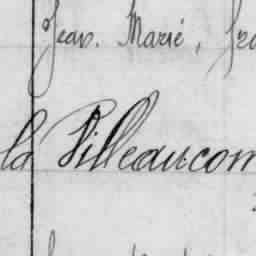 Jean. Marié, fra
la Villeaucom